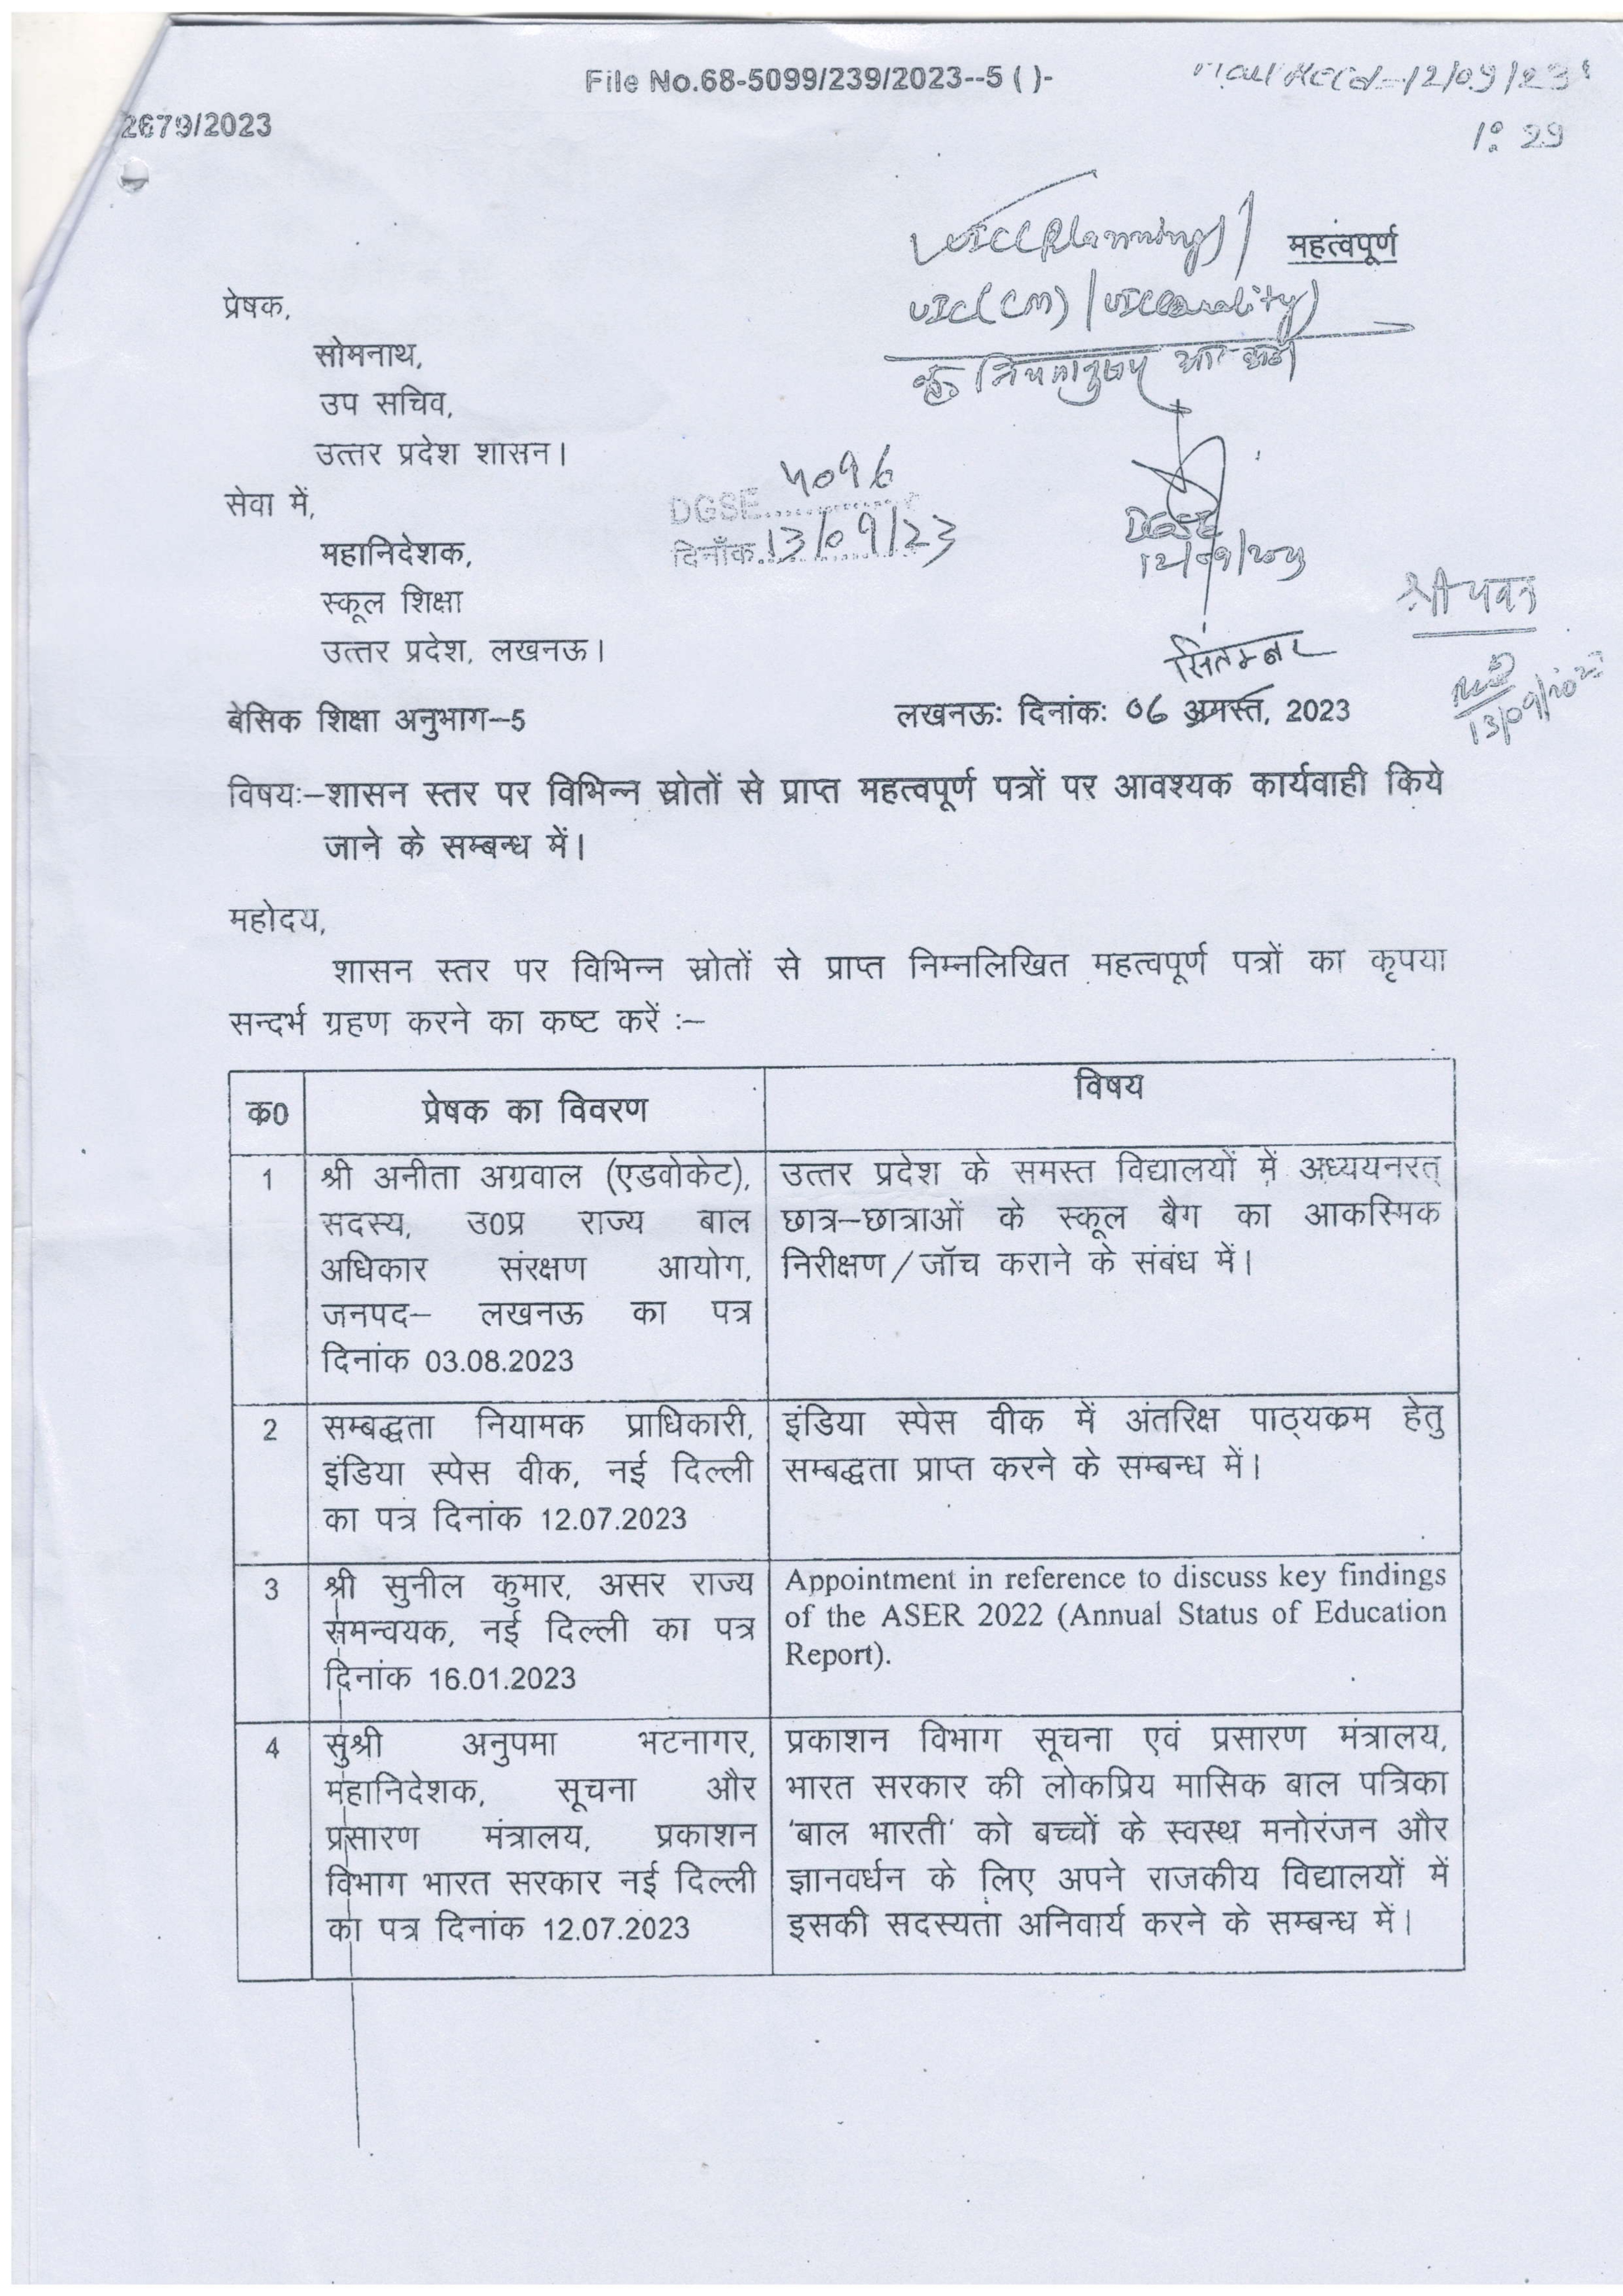 File No.68-5099/239/2023--5 ( )-
12/09/23
1:29
2679/2023
(Planning)/
महत्वपूर्ण
(CM) / (Quality)
प्रेषक,
सोमनाथ,
उप सचिव,
उत्तर प्रदेश शासन।
सेवा में,
DGSE 4096
दिनाँक 13/09/23
DGSE
12/09/2023
महानिदेशक,
स्कूल शिक्षा
उत्तर प्रदेश, लखनऊ।
श्री पवन
13/09/2023
सितम्बर
बेसिक शिक्षा अनुभाग–5
लखनऊः दिनांकः 06 अगस्त, 2023
विषयः–शासन स्तर पर विभिन्न स्रोतों से प्राप्त महत्वपूर्ण पत्रों पर आवश्यक कार्यवाही किये
जाने के सम्बन्ध में।
महोदय,
शासन स्तर पर विभिन्न स्रोतों से प्राप्त निम्नलिखित महत्वपूर्ण पत्रों का कृपया
सन्दर्भ ग्रहण करने का कष्ट करें :–
क0
प्रेषक का विवरण
विषय
1
श्री अनीता अग्रवाल (एडवोकेट),
सदस्य, उ0प्र राज्य बाल
अधिकार संरक्षण आयोग,
जनपद– लखनऊ का पत्र
दिनांक 03.08.2023
उत्तर प्रदेश के समस्त विद्यालयों में अध्ययनरत्
छात्र–छात्राओं के स्कूल बैग का आकस्मिक
निरीक्षण/जॉच कराने के संबंध में।
2
सम्बद्धता नियामक प्राधिकारी,
इंडिया स्पेस वीक, नई दिल्ली
का पत्र दिनांक 12.07.2023
इंडिया स्पेस वीक में अंतरिक्ष पाठ्यकम हेतु
सम्बद्धता प्राप्त करने के सम्बन्ध में।
3
श्री सुनील कुमार, असर राज्य
समन्वयक, नई दिल्ली का पत्र
दिनांक 16.01.2023
Appointment in reference to discuss key findings
of the ASER 2022 (Annual Status of Education
Report).
4
सुश्री अनुपमा भटनागर,
महानिदेशक, सूचना और
प्रसारण मंत्रालय, प्रकाशन
विभाग भारत सरकार नई दिल्ली
का पत्र दिनांक 12.07.2023
प्रकाशन विभाग सूचना एवं प्रसारण मंत्रालय,
भारत सरकार की लोकप्रिय मासिक बाल पत्रिका
'बाल भारती' को बच्चों के स्वस्थ मनोरंजन और
ज्ञानवर्धन के लिए अपने राजकीय विद्यालयों में
इसकी सदस्यता अनिवार्य करने के सम्बन्ध में।